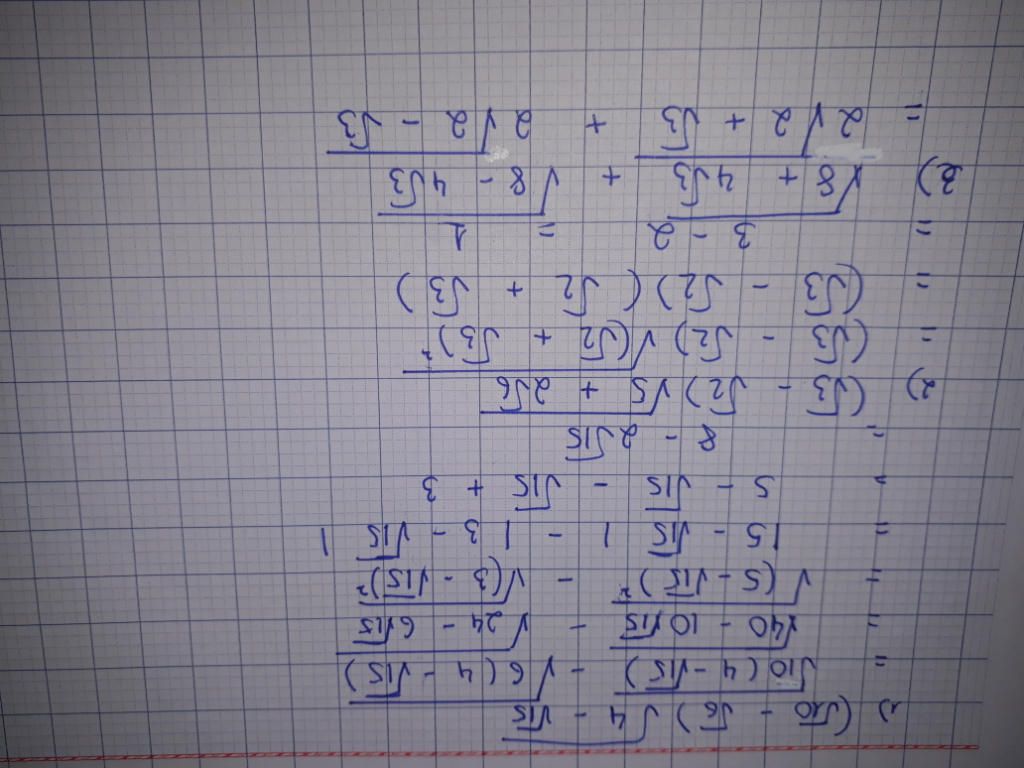 1) (√10 - √6) √(4 - √15)
= √(10(4 - √15)) - √(6(4 - √15))
= √(40 - 10√15) - √(24 - 6√15)
= √((5 - √15)²) - √((3 - √15)²)
= |5 - √15| - |3 - √15|
= 5 - √15 - √15 + 3
= 8 - 2√15
2) (√3 - √2) √(5 + 2√6)
= (√3 - √2) √((√2 + √3)²)
= (√3 - √2) (√2 + √3)
= 3 - 2 = 1
3) √(8 + 4√3) + √(8 - 4√3)
= 2√(2 + √3) + 2√(2 - √3)